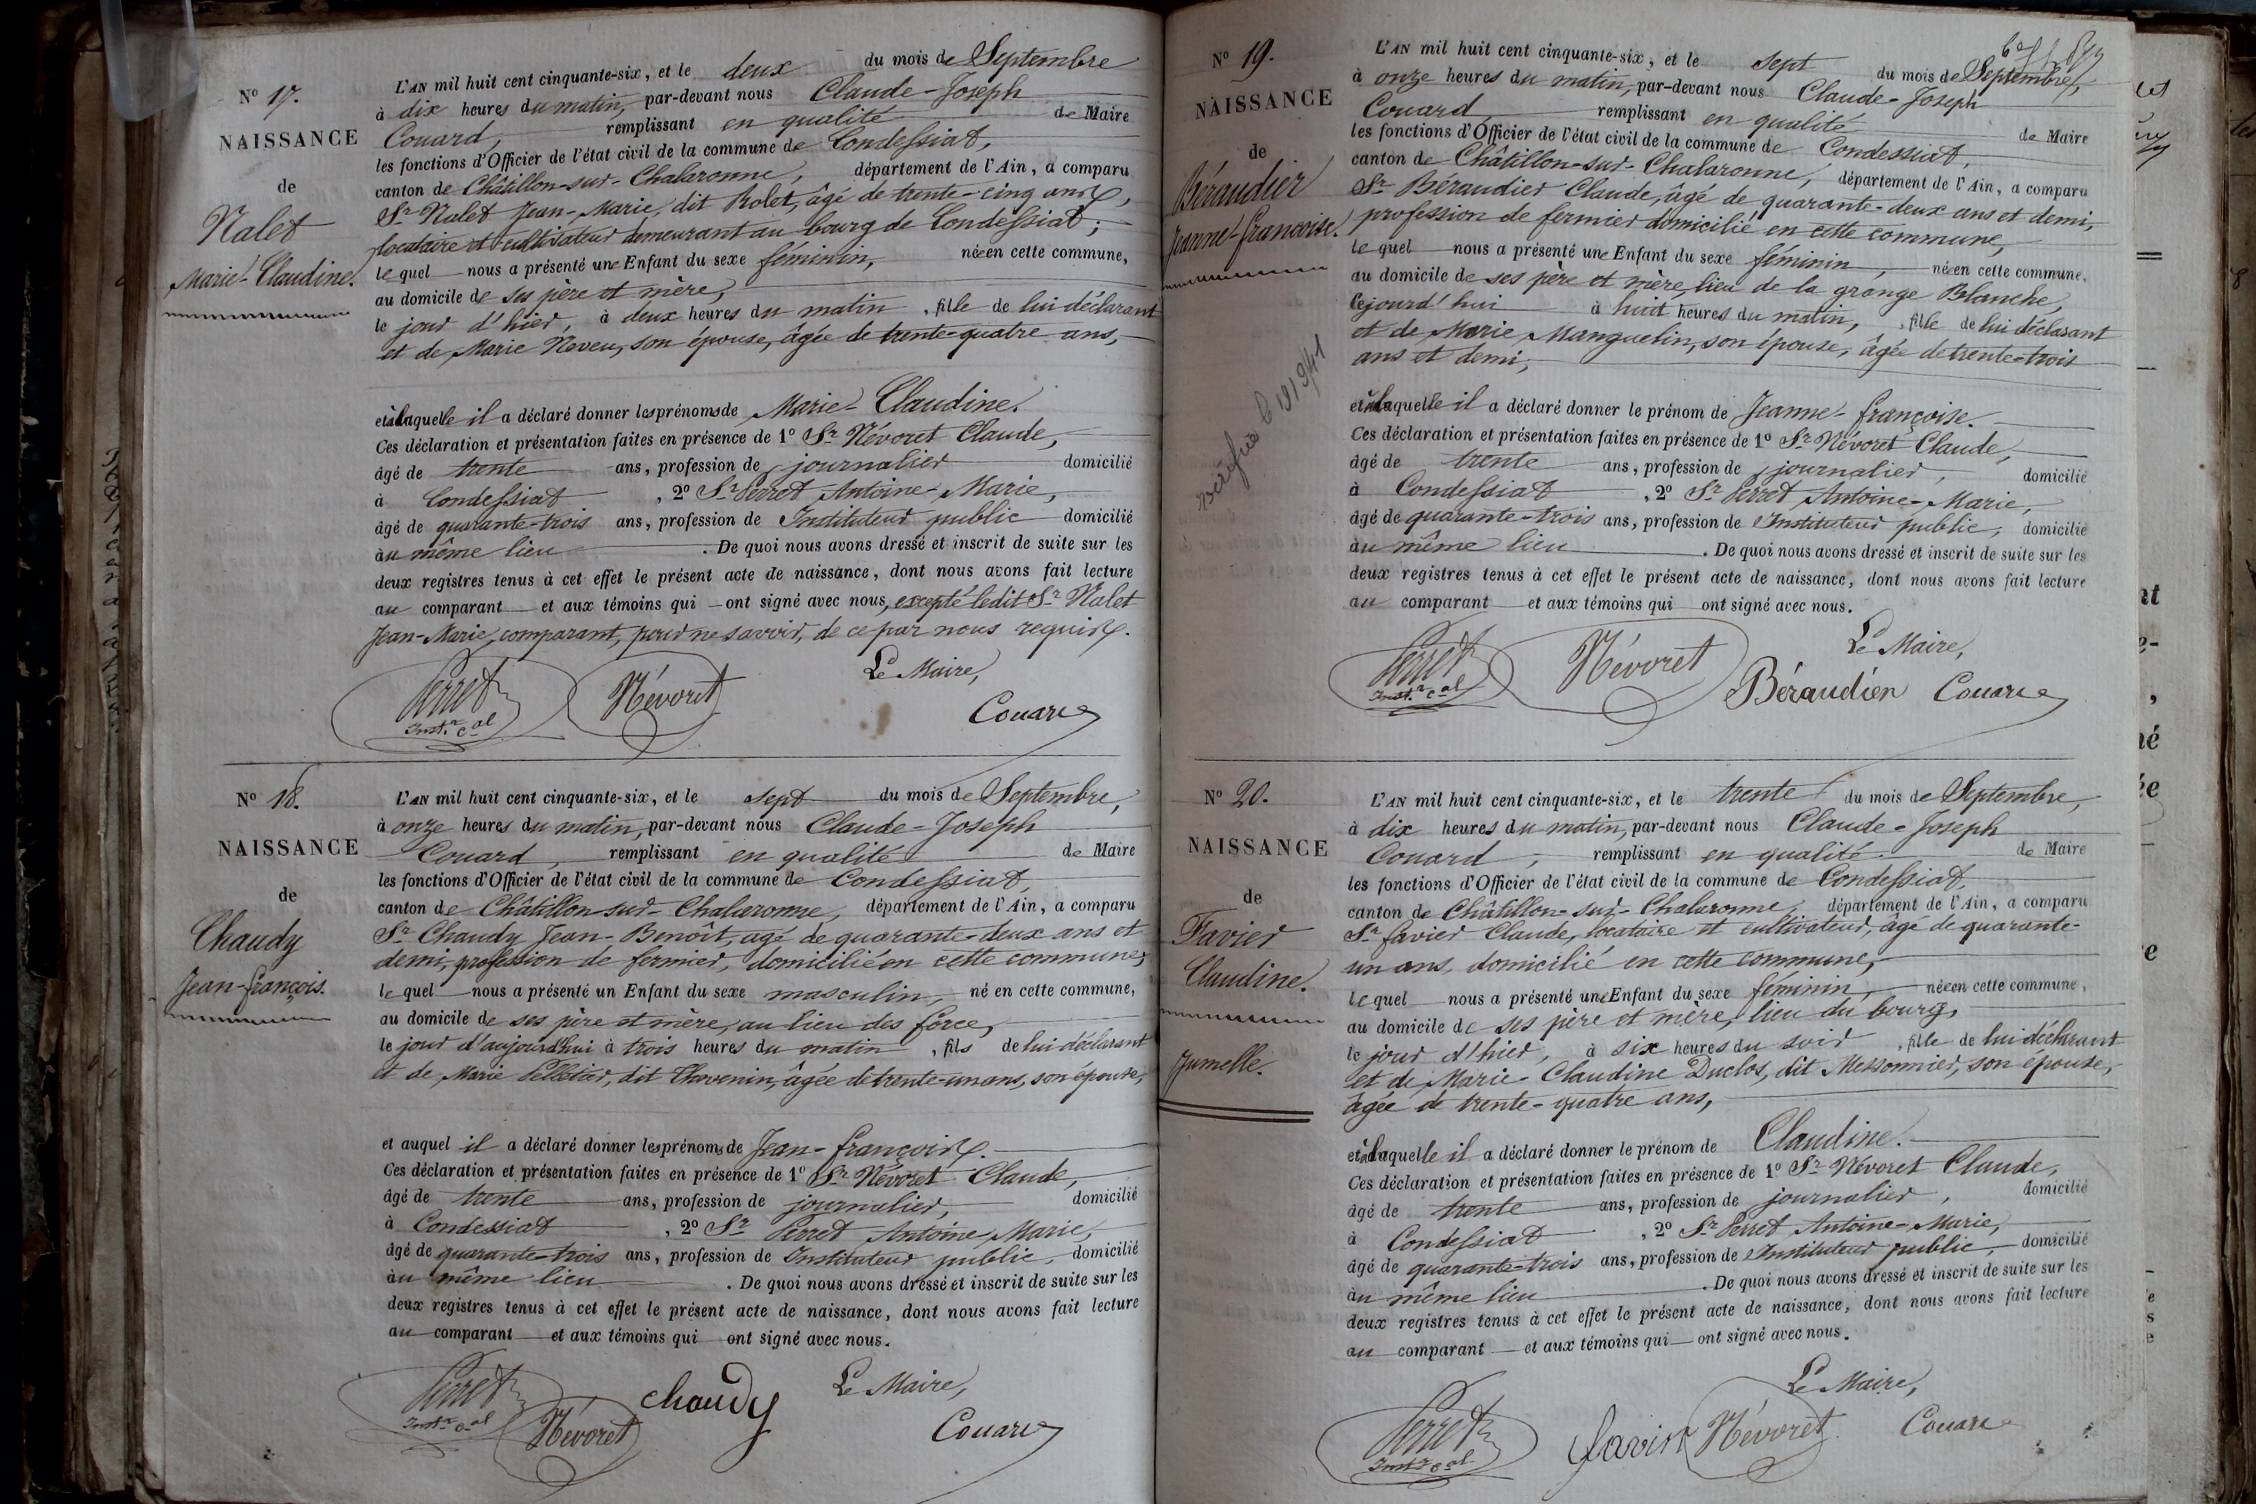 N° 17.
NAISSANCE
de
Nalet
Marie-Claudine.
L'AN mil huit cent cinquante-six, et le deux du mois de Septembre
à dix heures du matin, par-devant nous Claude-Joseph
Couard, remplissant en qualité de Maire
les fonctions d'Officier de l'état civil de la commune de Condessiat,
canton de Châtillon-sur-Chalaronne, département de l'Ain, a comparu
Sr Nalet Jean-Marie, dit Rolet, âgé de trente-cinq ans,
locataire et cultivateur demeurant au bourg de Condessiat;
le quel nous a présenté une Enfant du sexe féminin, née en cette commune,
au domicile de ses père et mère,
le jour d'hier, à deux heures du matin, fille de lui déclarant
et de Marie Neveu, son épouse, âgée de trente-quatre ans,
et à laquelle il a déclaré donner les prénoms de Marie-Claudine.
Ces déclaration et présentation faites en présence de 1° Sr Névoret Claude,
âgé de trente ans, profession de journalier domicilié
à Condessiat, 2° Sr Perret Antoine-Marie,
âgé de quarante-trois ans, profession de Instituteur public domicilié
au même lieu. De quoi nous avons dressé et inscrit de suite sur les
deux registres tenus à cet effet le présent acte de naissance, dont nous avons fait lecture
au comparant et aux témoins qui ont signé avec nous, excepté ledit Sr Nalet
Jean-Marie, comparant, pour ne savoir, de ce par nous requis.
Le Maire,
Perret Névoret
Instr cal
Couard
N° 18.
NAISSANCE
de
Chaudy
Jean-François.
L'AN mil huit cent cinquante-six, et le sept du mois de Septembre,
à onze heures du matin, par-devant nous Claude-Joseph
Couard, remplissant en qualité de Maire
les fonctions d'Officier de l'état civil de la commune de Condessiat,
canton de Châtillon-sur-Chalaronne, département de l'Ain, a comparu
Sr Chaudy Jean-Benoît, âgé de quarante-deux ans et
demi, profession de fermier, domicilié en cette commune,
le quel nous a présenté un Enfant du sexe masculin, né en cette commune,
au domicile de ses père et mère, au lieu des force,
le jour d'aujourd'hui à trois heures du matin, fils de lui déclarant
et de Marie Pelletier, dit Thevenin, âgée de trente-un ans, son épouse,
et auquel il a déclaré donner les prénoms de Jean-François.
Ces déclaration et présentation faites en présence de 1° Sr Névoret Claude,
âgé de trente ans, profession de journalier, domicilié
à Condessiat, 2° Sr Perret Antoine-Marie,
âgé de quarante-trois ans, profession de Instituteur public, domicilié
au même lieu. De quoi nous avons dressé et inscrit de suite sur les
deux registres tenus à cet effet le présent acte de naissance, dont nous avons fait lecture
au comparant et aux témoins qui ont signé avec nous.
Le Maire,
Perret chaudy
Instr cal Névoret
Couard
N° 19.
NAISSANCE
de
Béraudier
Jeanne-françoise.
L'AN mil huit cent cinquante-six, et le sept du mois de Septembre,
à onze heures du matin, par-devant nous Claude-Joseph
Couard remplissant en qualité de Maire
les fonctions d'Officier de l'état civil de la commune de Condessiat,
canton de Châtillon-sur-Chalaronne, département de l'Ain, a comparu
Sr Béraudier Claude, âgé de quarante-deux ans et demi,
profession de fermier domicilié en cette commune,
le quel nous a présenté une Enfant du sexe féminin, née en cette commune.
au domicile de ses père et mère, lieu de la grange Blanche,
cejourd'hui à huit heures du matin, fille de lui déclarant
et de Marie Manguelin, son épouse, âgée de trente-trois
ans et demi,
et à laquelle il a déclaré donner le prénom de Jeanne-françoise.
Ces déclaration et présentation faites en présence de 1° Sr Névoret Claude,
âgé de trente ans, profession de journalier, domicilié
à Condessiat, 2° Sr Perret Antoine-Marie,
âgé de quarante-trois ans, profession de Instituteur public, domicilié
au même lieu. De quoi nous avons dressé et inscrit de suite sur les
deux registres tenus à cet effet le présent acte de naissance, dont nous avons fait lecture
au comparant et aux témoins qui ont signé avec nous.
Le Maire,
Perret Névoret
Instr cal
Béraudier Couard
N° 20.
NAISSANCE
de
Favier
Claudine.
Jumelle.
L'AN mil huit cent cinquante-six, et le trente du mois de Septembre,
à dix heures du matin, par-devant nous Claude-Joseph
Couard, remplissant en qualité de Maire
les fonctions d'Officier de l'état civil de la commune de Condessiat,
canton de Châtillon-sur-Chalaronne, département de l'Ain, a comparu
Sr favier Claude, locataire et cultivateur, âgé de quarante-
un ans, domicilié en cette commune,
le quel nous a présenté une Enfant du sexe féminin, née en cette commune,
au domicile de ses père et mère, lieu du bourg,
le jour d'hier, à six heures du soir, fille de lui déclarant
et de Marie-Claudine Duclos, dit Messonnier, son épouse,
âgée de trente-quatre ans,
et à laquelle il a déclaré donner le prénom de Claudine.
Ces déclaration et présentation faites en présence de 1° Sr Névoret Claude,
âgé de trente ans, profession de journalier, domicilié
à Condessiat, 2° Sr Perret Antoine-Marie,
âgé de quarante-trois ans, profession de Instituteur public, domicilié
au même lieu. De quoi nous avons dressé et inscrit de suite sur les
deux registres tenus à cet effet le présent acte de naissance, dont nous avons fait lecture
au comparant et aux témoins qui ont signé avec nous.
Le Maire,
Perret favier Névoret Couard
Instr cal